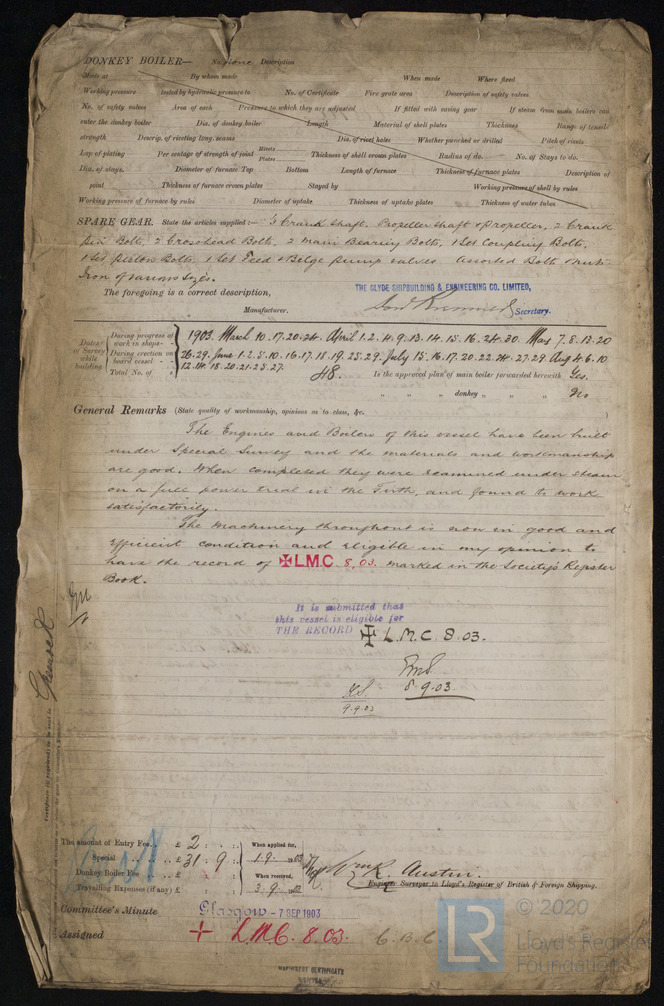 DONKEY BOILER— No. none Description
Made at By whom made When made Where fixed
Working pressure tested by hydraulic pressure to No. of Certificate Fire grate area Description of safety valves
No. of safety valves Area of each Pressure to which they are adjusted If fitted with easing gear If steam from main boilers can
enter the donkey boiler Dia. of donkey boiler Length Material of shell plates Thickness Range of tensile
strength Descrip. of riveting long. seams Dia. of rivet holes Whether punched or drilled Pitch of rivets
Lap of plating Per centage of strength of joint Rivets Plates Thickness of shell crown plates Radius of do. No. of Stays to do.
Dia. of stays. Diameter of furnace Top Bottom Length of furnace Thickness of furnace plates Description of
joint Thickness of furnace crown plates Stayed by Working pressure of shell by rules
Working pressure of furnace by rules Diameter of uptake Thickness of uptake plates Thickness of water tubes
SPARE GEAR. State the articles supplied:— Crank shaft, Propeller shaft & propeller, 2 Crank
pin Bolts, 2 Crosshead Bolts, 2 Main Bearing Bolts, 1 Set Coupling Bolts,
1 Set piston Bolts, 1 Set Feed & Bilge pump valves assorted Bolts & nuts
Iron of various sizes.
The foregoing is a correct description,
THE CLYDE SHIPBUILDING & ENGINEERING CO. LIMITED,
Manufacturer. Secretary.
Dates of Survey while building
During progress of work in shops-- 1903. March 10.17.20.24. April 1.2.4.9.13.14.15.16.24.30. May 7.8.12.20
During erection on board vessel -- 26.29. June 1.2.5.10.16.17.18.19.25.29. July 15.16.17.20.22.24.27.29 Aug 4.6.10
12.14.18.20.21.25.27.
Total No. of 48. Is the approved plan of main boiler forwarded herewith Yes.
" " " donkey " " " No
General Remarks (State quality of workmanship, opinions as to class, &c.
The Engines and Boilers of this vessel have been built
under Special Survey and the materials and workmanship
are good. When completed they were examined under steam
on a full power trial in the Firth, and found to work
satisfactorily.
The machinery throughout is now in good and
efficient condition and eligible in my opinion to
have the record of ✠ L.M.C. 8,03. marked in the Society's Register
Book.
It is submitted that
this vessel is eligible for
THE RECORD ✠ L.M.C 8.03.
8.9.03.
9.9.03
Greenock
The amount of Entry Fee.. £ 2 : : When applied for,
Special £ 31 . 9 : 1.9. 1903
Donkey Boiler Fee £ : : When received,
Travelling Expenses (if any) £ : : 3.9.
R. Austin.
Engineer Surveyor to Lloyd's Register of British & Foreign Shipping.
Committee's Minute Glasgow - 7 SEP 1903
Assigned + L.M.C. 8.03.
MACHINERY CERTIFICATE
LR
© 2020
Lloyd's Register
Foundation